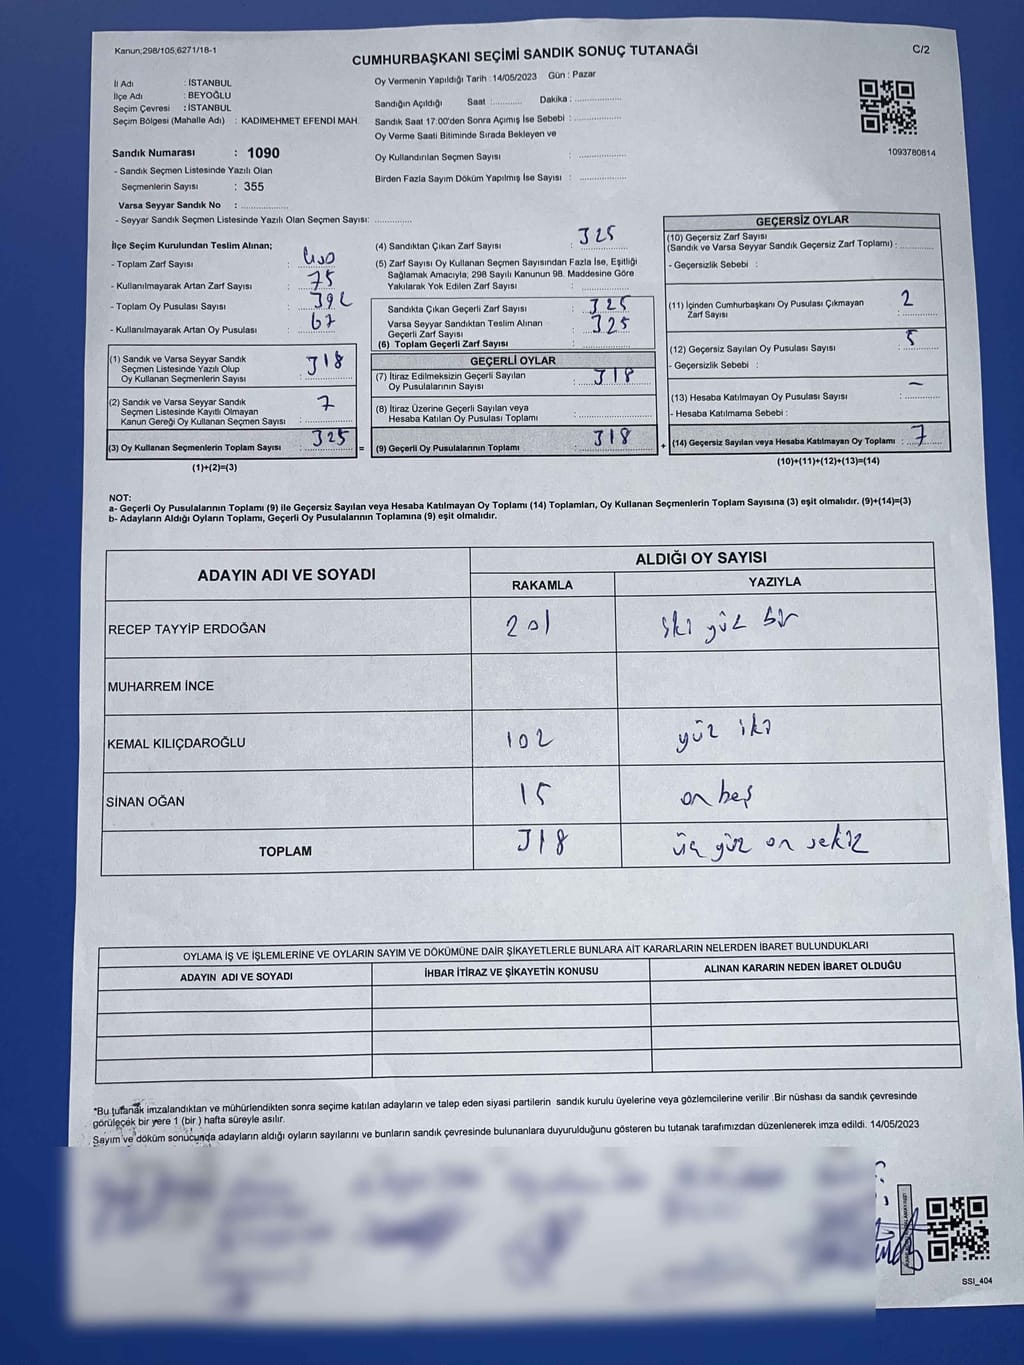 Kanun;298/105,6271/18-1
CUMHURBAŞKANI SEÇİMİ SANDIK SONUÇ TUTANAĞI
C/2
İl Adı : İSTANBUL
İlçe Adı : BEYOĞLU
Seçim Çevresi : İSTANBUL
Seçim Bölgesi (Mahalle Adı) : KADIMEHMET EFENDİ MAH.
Sandık Numarası : 1090
- Sandık Seçmen Listesinde Yazılı Olan
Seçmenlerin Sayısı : 355
Varsa Seyyar Sandık No : ..............
- Seyyar Sandık Seçmen Listesinde Yazılı Olan Seçmen Sayısı: ............
Oy Vermenin Yapıldığı Tarih : 14/05/2023 Gün : Pazar
Sandığın Açıldığı Saat :.......... Dakika : ..............
Sandık Saat 17:00'den Sonra Açımış İse Sebebi : ..............
Oy Verme Saati Bitiminde Sırada Bekleyen ve
Oy Kullandırılan Seçmen Sayısı : ..............
Birden Fazla Sayım Döküm Yapılmış İse Sayısı : ..............
1093780814
İlçe Seçim Kurulundan Teslim Alınan;
- Toplam Zarf Sayısı : 400
- Kullanılmayarak Artan Zarf Sayısı : 75
- Toplam Oy Pusulası Sayısı : 392
- Kullanılmayarak Artan Oy Pusulası : 67
(1) Sandık ve Varsa Seyyar Sandık
Seçmen Listesinde Yazılı Olup
Oy Kullanan Seçmenlerin Sayısı : 318
(2) Sandık ve Varsa Seyyar Sandık
Seçmen Listesinde Kayıtlı Olmayan
Kanun Gereği Oy Kullanan Seçmen Sayısı : 7
(3) Oy Kullanan Seçmenlerin Toplam Sayısı : 325
(1)+(2)=(3)
(4) Sandıktan Çıkan Zarf Sayısı : 325
(5) Zarf Sayısı Oy Kullanan Seçmen Sayısından Fazla İse, Eşitliği
Sağlamak Amacıyla; 298 Sayılı Kanunun 98. Maddesine Göre
Yakılarak Yok Edilen Zarf Sayısı : ..............
Sandıkta Çıkan Geçerli Zarf Sayısı : 325
Varsa Seyyar Sandıktan Teslim Alınan
Geçerli Zarf Sayısı : 325
(6) Toplam Geçerli Zarf Sayısı :
GEÇERLİ OYLAR
(7) İtiraz Edilmeksizin Geçerli Sayılan
Oy Pusulalarının Sayısı : 318
(8) İtiraz Üzerine Geçerli Sayılan veya
Hesaba Katılan Oy Pusulası Toplamı :
= (9) Geçerli Oy Pusulalarının Toplamı : 318
GEÇERSİZ OYLAR
(10) Geçersiz Zarf Sayısı
(Sandık ve Varsa Seyyar Sandık Geçersiz Zarf Toplamı) :
- Geçersizlik Sebebi :
(11) İçinden Cumhurbaşkanı Oy Pusulası Çıkmayan
Zarf Sayısı : 2
(12) Geçersiz Sayılan Oy Pusulası Sayısı : 5
- Geçersizlik Sebebi :
(13) Hesaba Katılmayan Oy Pusulası Sayısı : –
- Hesaba Katılmama Sebebi :
+ (14) Geçersiz Sayılan veya Hesaba Katılmayan Oy Toplamı : 7
(10)+(11)+(12)+(13)=(14)
NOT:
a- Geçerli Oy Pusulalarının Toplamı (9) ile Geçersiz Sayılan veya Hesaba Katılmayan Oy Toplamı (14) Toplamları, Oy Kullanan Seçmenlerin Toplam Sayısına (3) eşit olmalıdır. (9)+(14)=(3)
b- Adayların Aldığı Oyların Toplamı, Geçerli Oy Pusulalarının Toplamına (9) eşit olmalıdır.
ADAYIN ADI VE SOYADI
ALDIĞI OY SAYISI
RAKAMLA YAZIYLA
RECEP TAYYİP ERDOĞAN 201 iki yüz bir
MUHARREM İNCE
KEMAL KILIÇDAROĞLU 102 yüz iki
SİNAN OĞAN 15 on beş
TOPLAM 318 üç yüz on sekiz
OYLAMA İŞ VE İŞLEMLERİNE VE OYLARIN SAYIM VE DÖKÜMÜNE DAİR ŞİKAYETLERLE BUNLARA AİT KARARLARIN NELERDEN İBARET BULUNDUKLARI
ADAYIN ADI VE SOYADI İHBAR İTİRAZ VE ŞİKAYETİN KONUSU ALINAN KARARIN NEDEN İBARET OLDUĞU
*Bu tutanak imzalandıktan ve mühürlendikten sonra seçime katılan adayların ve talep eden siyasi partilerin sandık kurulu üyelerine veya gözlemcilerine verilir .Bir nüshası da sandık çevresinde
görülecek bir yere 1 (bir ) hafta süreyle asılır.
Sayım ve döküm sonucunda adayların aldığı oyların sayılarını ve bunların sandık çevresinde bulunanlara duyurulduğunu gösteren bu tutanak tarafımızdan düzenlenerek imza edildi. 14/05/2023
SSI_404